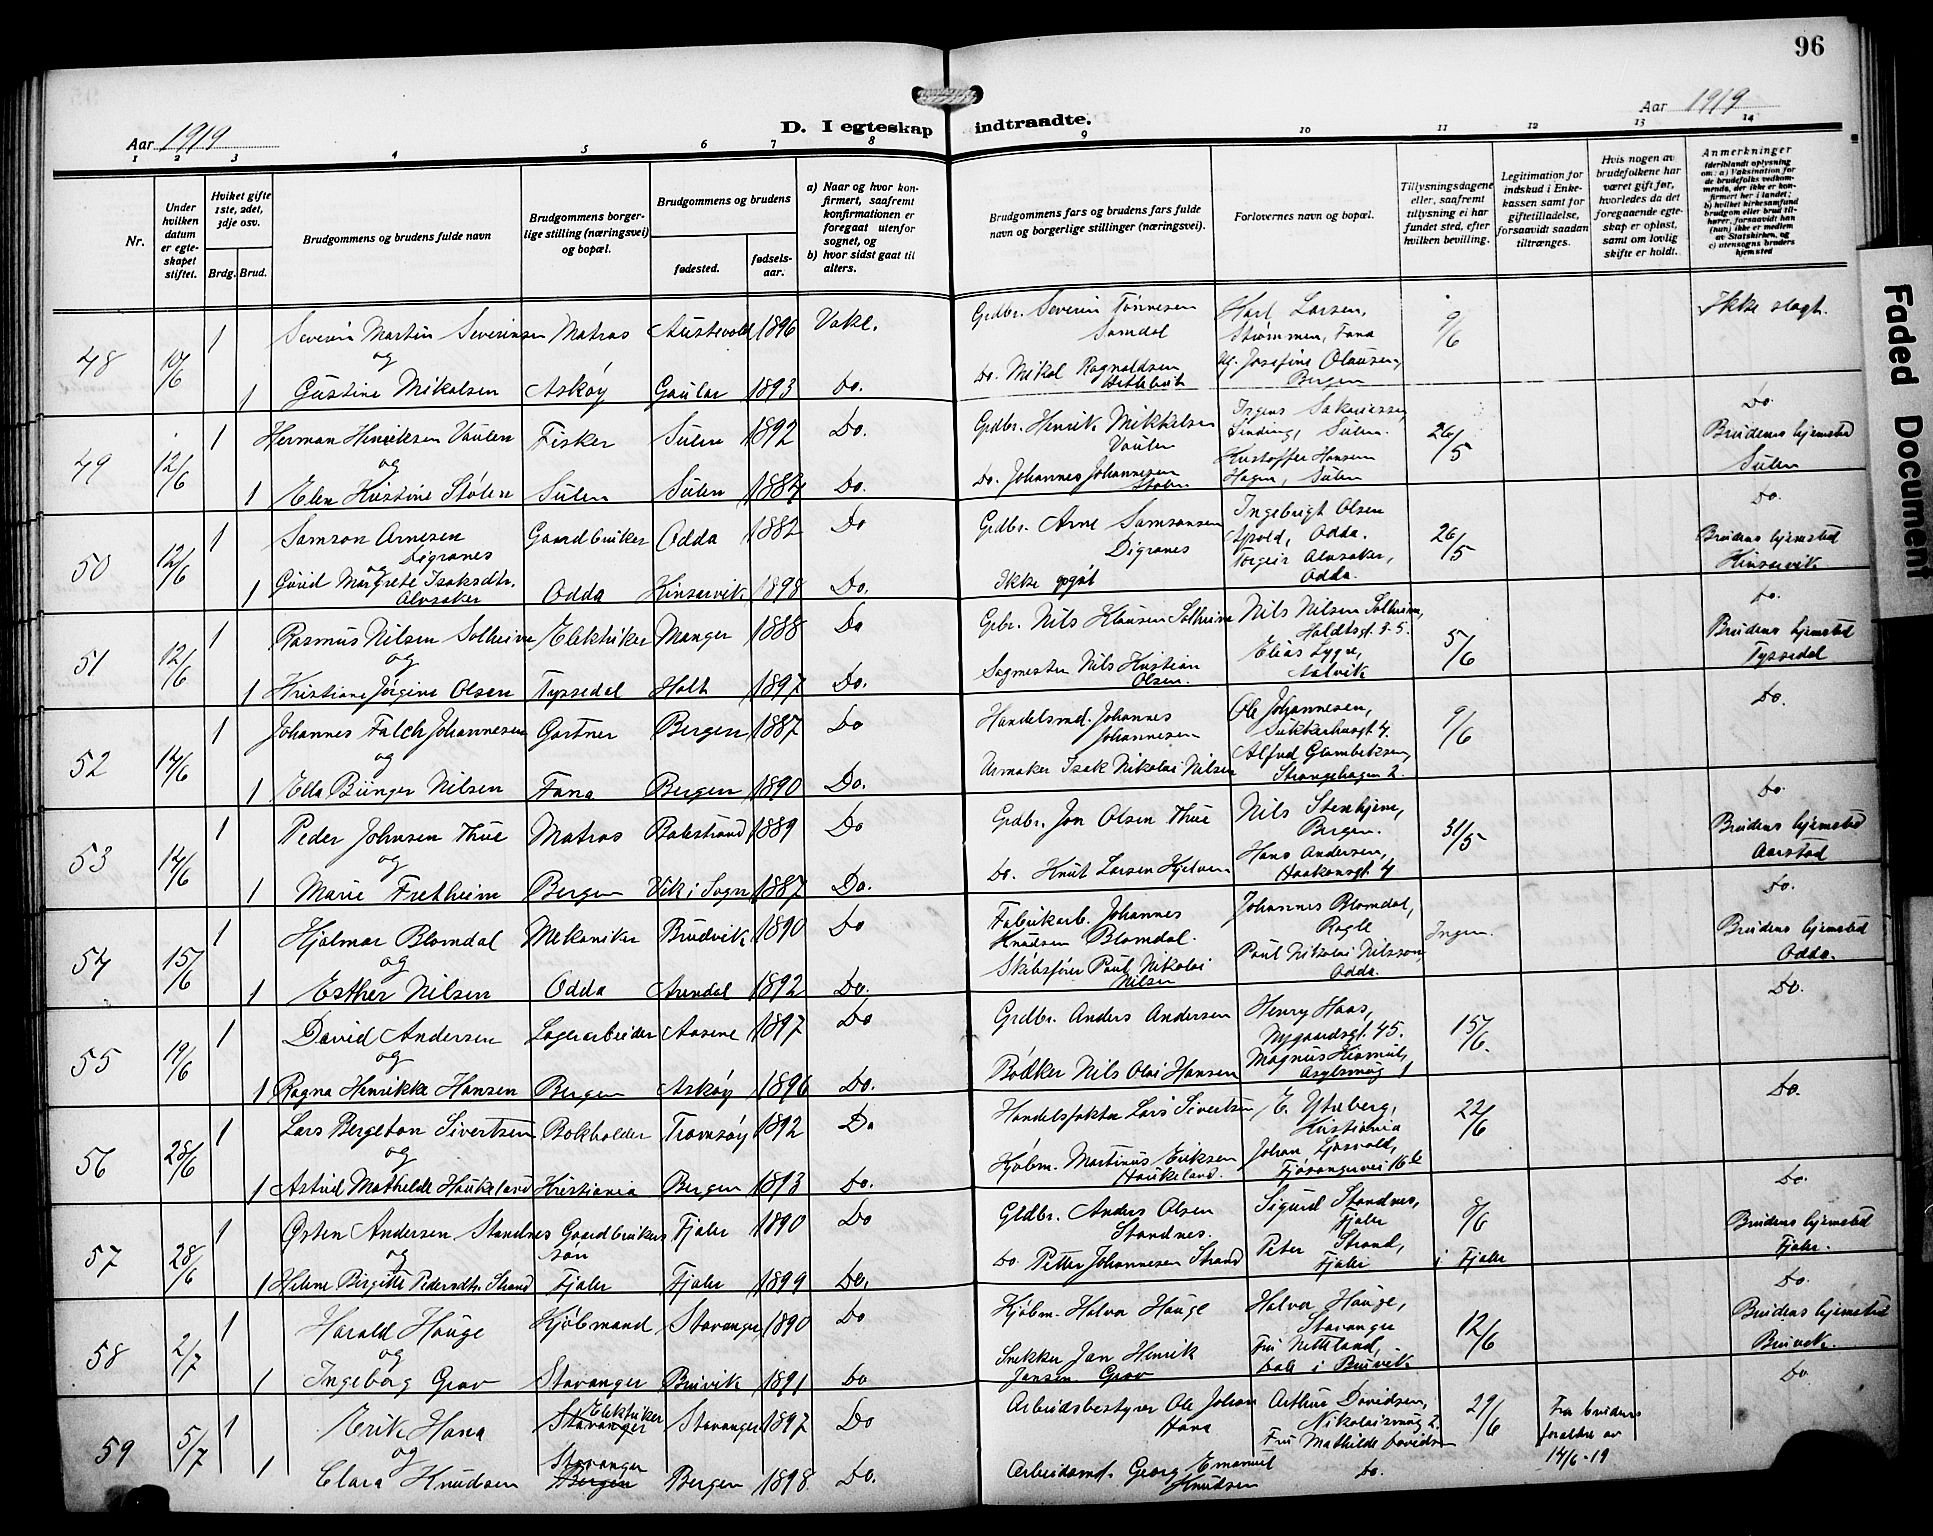 96
Aar 1919
D. I egteskap indtraadte.
Aar 1919
1 2 3 4 5 6 7 8 9 10 11 12 13 14
Nr.
Under hvilken datum er egteskapet stiftet.
Hvilket gifte 1ste, 2det, 3dje osv.
Brdg. Brud.
Brudgommens og brudens fulde navn
Brudgommens borgerlige stilling (næringsvei) og bopæl.
Brudgommens og brudens
fødested.
fødselsaar.
a) Naar og hvor konfirmert, saafremt konfirmationen er foregaat utenfor sognet, og
b) hvor sidst gaat til alters.
Brudgommens fars og brudens fars fulde navn og borgerlige stillinger (næringsvei).
Forlovernes navn og bopæl.
Tillysningsdagene eller, saafremt tillysning ei har fundet sted, efter hvilken bevilling.
Legitimation for indskud i Enkekassen samt for giftetilladelse, forsaavidt saadan tiltrænges.
Hvis nogen av brudefolkene har været gift før, hvorledes da det foregaaende egteskap er opløst, samt om lovlig skifte er holdt.
Anmerkninger
(deriblandt oplysning om: a) Vaksination for de brudefolks vedkommende, der ikke er konfirmert her i landet; b) hvilket kirkesamfund brudgom eller brud tilhører, forsaavidt han (hun) ikke er medlem av Statskirken, og c) utensogns bruders hjemsted
48 10/6 1 Severin Martin Severinsen Matros Austevold 1896 Vake. Grdbr. Severin Tønnesen Samdal Karl Larsen, Strømmen, Fana 9/6 Ikke slagt.
og
1 Gustine Mikalsen Askøy Gaular 1893 Do. Do. Mikal Ragnaldsen Josefine Olausen, Bergen Do.
49 12/6 1 Herman Henriksen Vaulen Fisker Sulen 1892 Do. Grdbr. Henrik Mikkelsen Vaulen Sulen. 26/5 Brudens hjemsted Sulen
og
1 Elen Kristine Stølen Sulen Sulen 1884 Do. Do. Johannes Johannesen Stølen Kristoffer Hansen Hagen, Sulen Do.
50 12/6 1 Samson Arnesen Digranes Gaardbruker Odda 1882 Do Grdbr. Arne Samsonsen Digranes Ingebrigt Olsen Odda. 26/5 Brudens hjemsted Kinsarvik
og
1 Gurid Margrete Isaksdtr. Alvsaker Odda Kinsarvik 1898 Do. Ikke opgit Torgeir Alvsaker, Odda. Do.
51 12/6 1 Rasmus Nilsen Solheim Elektriker Manger 1888 Do Grbr. Nils Klausen Solheim Nils Nilsen Solheim, Holdtsgt. 3-5. 5/6 Brudens hjemsted Tyssedal
og
1 Kristiane Jørgine Olsen Tyssedal Holt 1897 Do. Sagmester Nils Kristian Olsen. Elias Lygre, Aalvik Do.
52 14/6 1 Johannes Falch Johannesen Gartner Bergen 1887 Do Handelsmd. Johannes Johannesen Ole Johannesen, Sukkerhusgt 4. 9/6
og
1 Edla Bünger Nilsen Fana Bergen 1890 Do. Urmaker Isak Nikolai Nilsen Strangehagen 2. Do.
53 14/6 1 Peder Johnsen Thue Matros Balestrand 1889 Do Grdbr. Jon Olsen Thue Nils Stenhjem, Bergen. 31/5 Brudens hjemsted Aarstad
og
1 Marie Fretheim Bergen Vik i Sogn 1887 Do. Do. Knut Larsen Hans Andersen, Haakonsgt. 4 Do.
54 15/6 1 Hjalmar Blomdal Mekaniker Brudvik 1890 Do Fabrikarb. Johannes Knudsen Blomdal. Johannes Blomdal, Ingen. Brudens hjemsted Odda.
og
1 Esther Nilsen Odda Arendal 1892 Do. Skibsfører Paul Nikolai Nilsen Paul Nikolai Nilsson, Odda. Do.
55 19/6 1 David Andersen Lagerarbeider Aasene 1897 Do Grdbr. Anders Andersen Henry Haas, Nygaardsgt. 45. 15/6
og
1 Ragna Henrikke Hansen Bergen Askøy 1896 Do. Bødker Nils Olai Hansen Magnus Asylsmug 1 Do.
56 28/6 1 Lars Bergeton Sivertsen Bokholder Tromsøy 1892 Do Handelsfaktor Lars Sivertsen E. Ytreberg, Kristiania 22/6
og
1 Astrid Mathilde Haukeland Kristiania Bergen 1893 Do. Kjøbm. Martinus Eriksen Haukeland. Johan Fjøsangervei 16 b Do.
57 28/6 1 Østen Andersen Standnes Gaardbrukers søn Fjaler 1890 Do Grdbr. Anders Olsen Standnes. Sigurd Standnes, Fjaler 8/6 Brudens hjemsted Fjaler.
og
1 Helene Birgitte Pedersdtr. Strand Fjaler Fjaler 1899 Do. Do. Petter Johannesen Strand Peter Strand, Fjaler i Fjaler Do.
58 2/7 1 Harald Hauge Kjøbmand, Stavanger 1890 Do Kjøbm. Halvor Hauge Halvor Hauge, Stavanger 12/6 Brudens hjemsted Bruvik.
og
1 Ingeborg Grov Stavanger Bruvik 1891 Do Snekker Jan Henrik Jansen Grov Fru Nettland, Dale i Bruvik Do
59 5/7 1 Erik Hana Elektriker Stavanger Stavanger 1897 Do Arbeidsbestyrer Ole Johan Hana Arthur Davidsen, Nikolaismug 2. 29/6 Fra brudens forældre av 14/6-19
og
1 Clara Knudsen Stavanger Bergen Bergen 1898 Do. Arbeidsmd. Georg Emanuel Knudsen Fru Mathilde Davidsen Do.
Faded Document